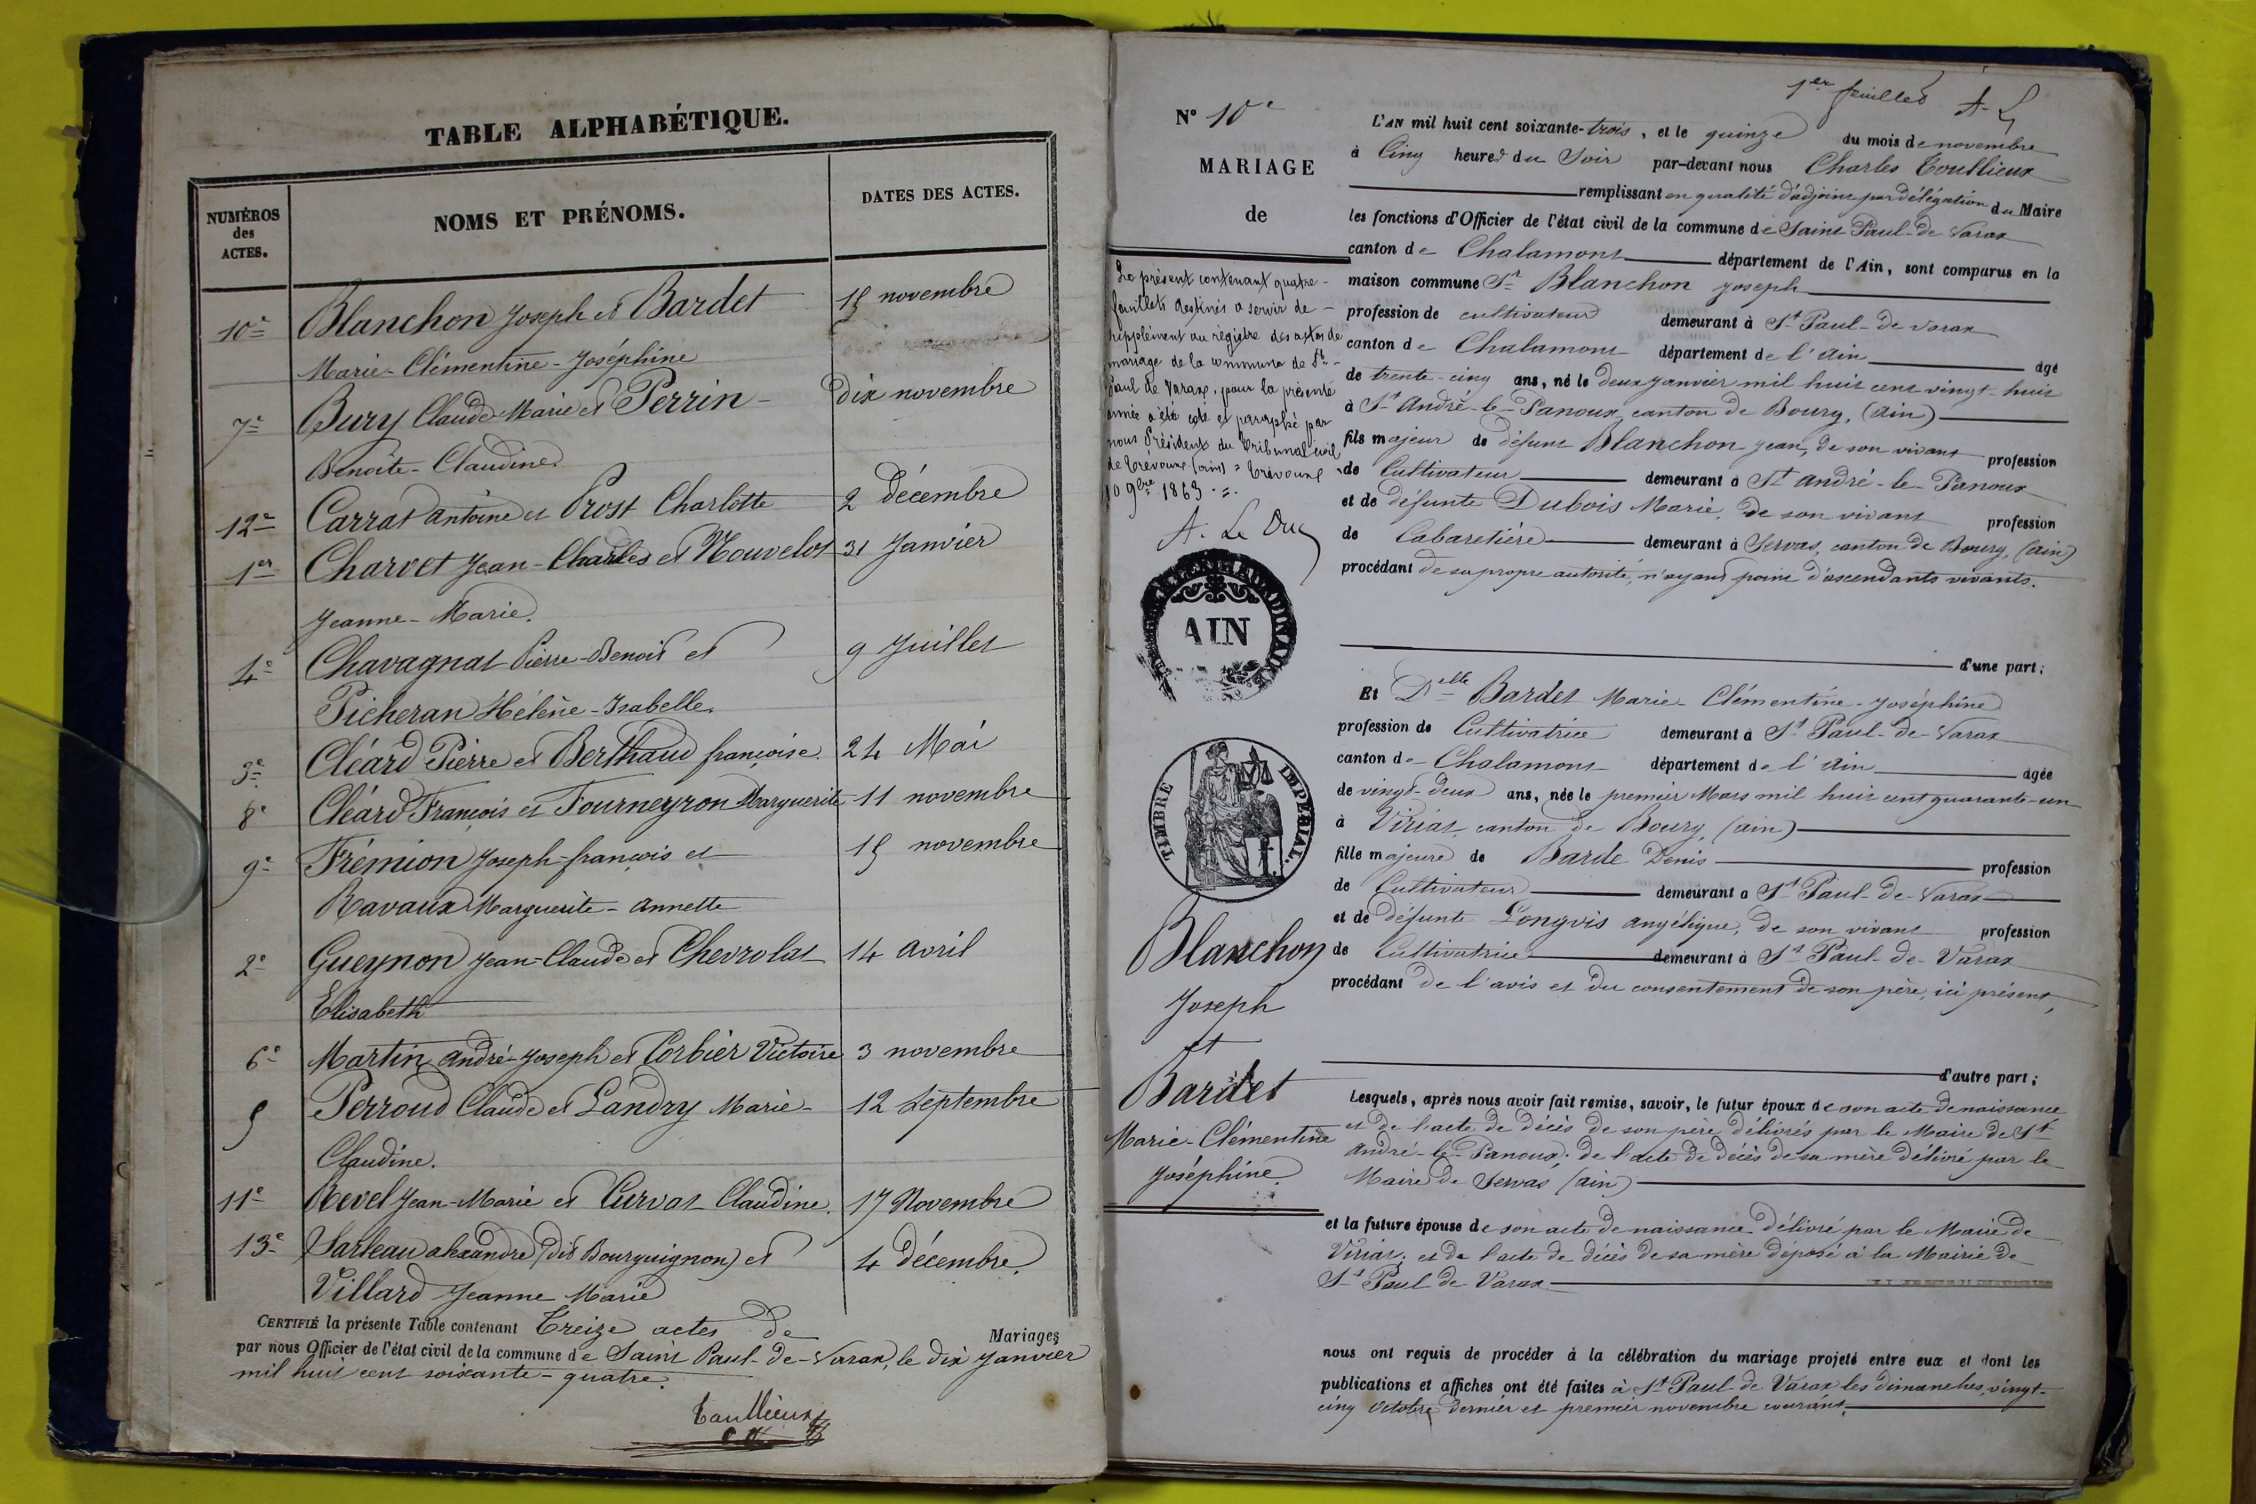 TABLE ALPHABÉTIQUE.
NUMÉROS des ACTES.
NOMS ET PRÉNOMS.
DATES DES ACTES.
10e Blanchon Joseph et Bardet 15 novembre
Marie-Clémentine-Joséphine
7e Bury Claude Marie et Perrin- Dix novembre
Benoîte-Claudine.
12e Carrat Antoine et Prost Charlotte 2 Décembre
1er Charvet Jean-Charles et Nouvelot 31 Janvier
Jeanne-Marie.
4e Chavagnat Pierre-Benoit et 9 Juillet
Picheran Hélène-Isabelle.
3e Cléard Pierre et Berthaud françoise. 24 Mai
8e Cléard François et Fourneyron Marguerite 11 novembre
9e Frémion Joseph-françois et 15 novembre
Ravaux Marguerite-Annette
2e Gueynon Jean-Claude et Chevrolat 14 avril
Elisabeth
6e Martin André-Joseph et Corbier Victoire 3 novembre
5 Perroud Claude et Landry Marie- 12 Septembre
Claudine.
11e Revel Jean-Marie et Curvat Claudine. 17 Novembre
13e Sarleau alexandre (dit Bourguignon) et 4 Décembre.
Villard Jeanne Marie
CERTIFIÉ la présente Table contenant Treize actes de Mariages
par nous Officier de l'état civil de la commune de Saint Paul-de-Varax, le dix Janvier
mil huit cent soixante-quatre.
Toullieux
1er feuillet A. L
N° 10e
MARIAGE
de
Le présent contenant quatre-
feuillets destinés a servir de-
supplément au régistre des actes de
mariage de la commune de St-
Paul de Varax, pour la présente
année a été coté et paraphé par
nous Président du Tribunal civil
de Trévoux (ain) = Trévoux
10 9bre 1863.
A. Le Duc
AIN
TIMBRE IMPÉRIAL.
Blanchon
Joseph
et
Bardet
Marie-Clémentine
Joséphine.
L'AN mil huit cent soixante-trois, et le quinze du mois de novembre
à Cinq heures du Soir par-devant nous Charles Toullieux
remplissant en qualité d'adjoint par délégation du Maire
les fonctions d'Officier de l'état civil de la commune de Saint Paul-de Varax
canton de Chalamont département de l'Ain, sont comparus en la
maison commune Sr Blanchon Joseph
profession de cultivateur demeurant à St Paul-de varax
canton de Chalamont département de l'Ain
âgé
de trente-cinq ans, né le deux Janvier mil huit cent vingt-huit
à St André-le-Panoux, canton de Bourg, (Ain)
fils majeur de défunt Blanchon Jean, de son vivant profession
de Cultivateur demeurant à St andré-le-Panoux
et de défunte Dubois Marie, de son vivant profession
de Cabaretière demeurant à Servas, canton de Bourg, (Ain)
procédant de sa propre autorité, n'ayant point d'ascendants vivants.
d'une part;
Et Delle Bardet Marie-Clémentine-Joséphine
profession de Cultivatrice demeurant à St Paul-de-Varax
canton de Chalamont département de l'Ain âgée
de vingt-deux ans, née le premier Mars mil huit cent quarante-un
à Viriat canton de Bourg, (ain)
fille majeure de Barde Denis profession
de Cultivateur demeurant à St Paul-de-Varax
et de défunte Longvis angélique, de son vivant profession
de Cultivatrice demeurant à St Paul-de-Varax
procédant de l'avis et du consentement de son père, ici présent,
d'autre part;
Lesquels, après nous avoir fait remise, savoir, le futur époux de son acte de naissance
et de l'acte de décès de son père délivrés par le Maire de St
André-le-Panoux; de l'acte de décès de sa mère délivré par le
Maire de Servas (ain)
et la future épouse de son acte de naissance délivré par le Maire de
Viriat, et de l'acte de décès de sa mère déposé à la Mairie de
St Paul de Varax
nous ont requis de procéder à la célébration du mariage projeté entre eux et dont les
publications et affiches ont été faites à St Paul-de Varax les dimanches, vingt-
cinq Octobre dernier et premier novembre courant.